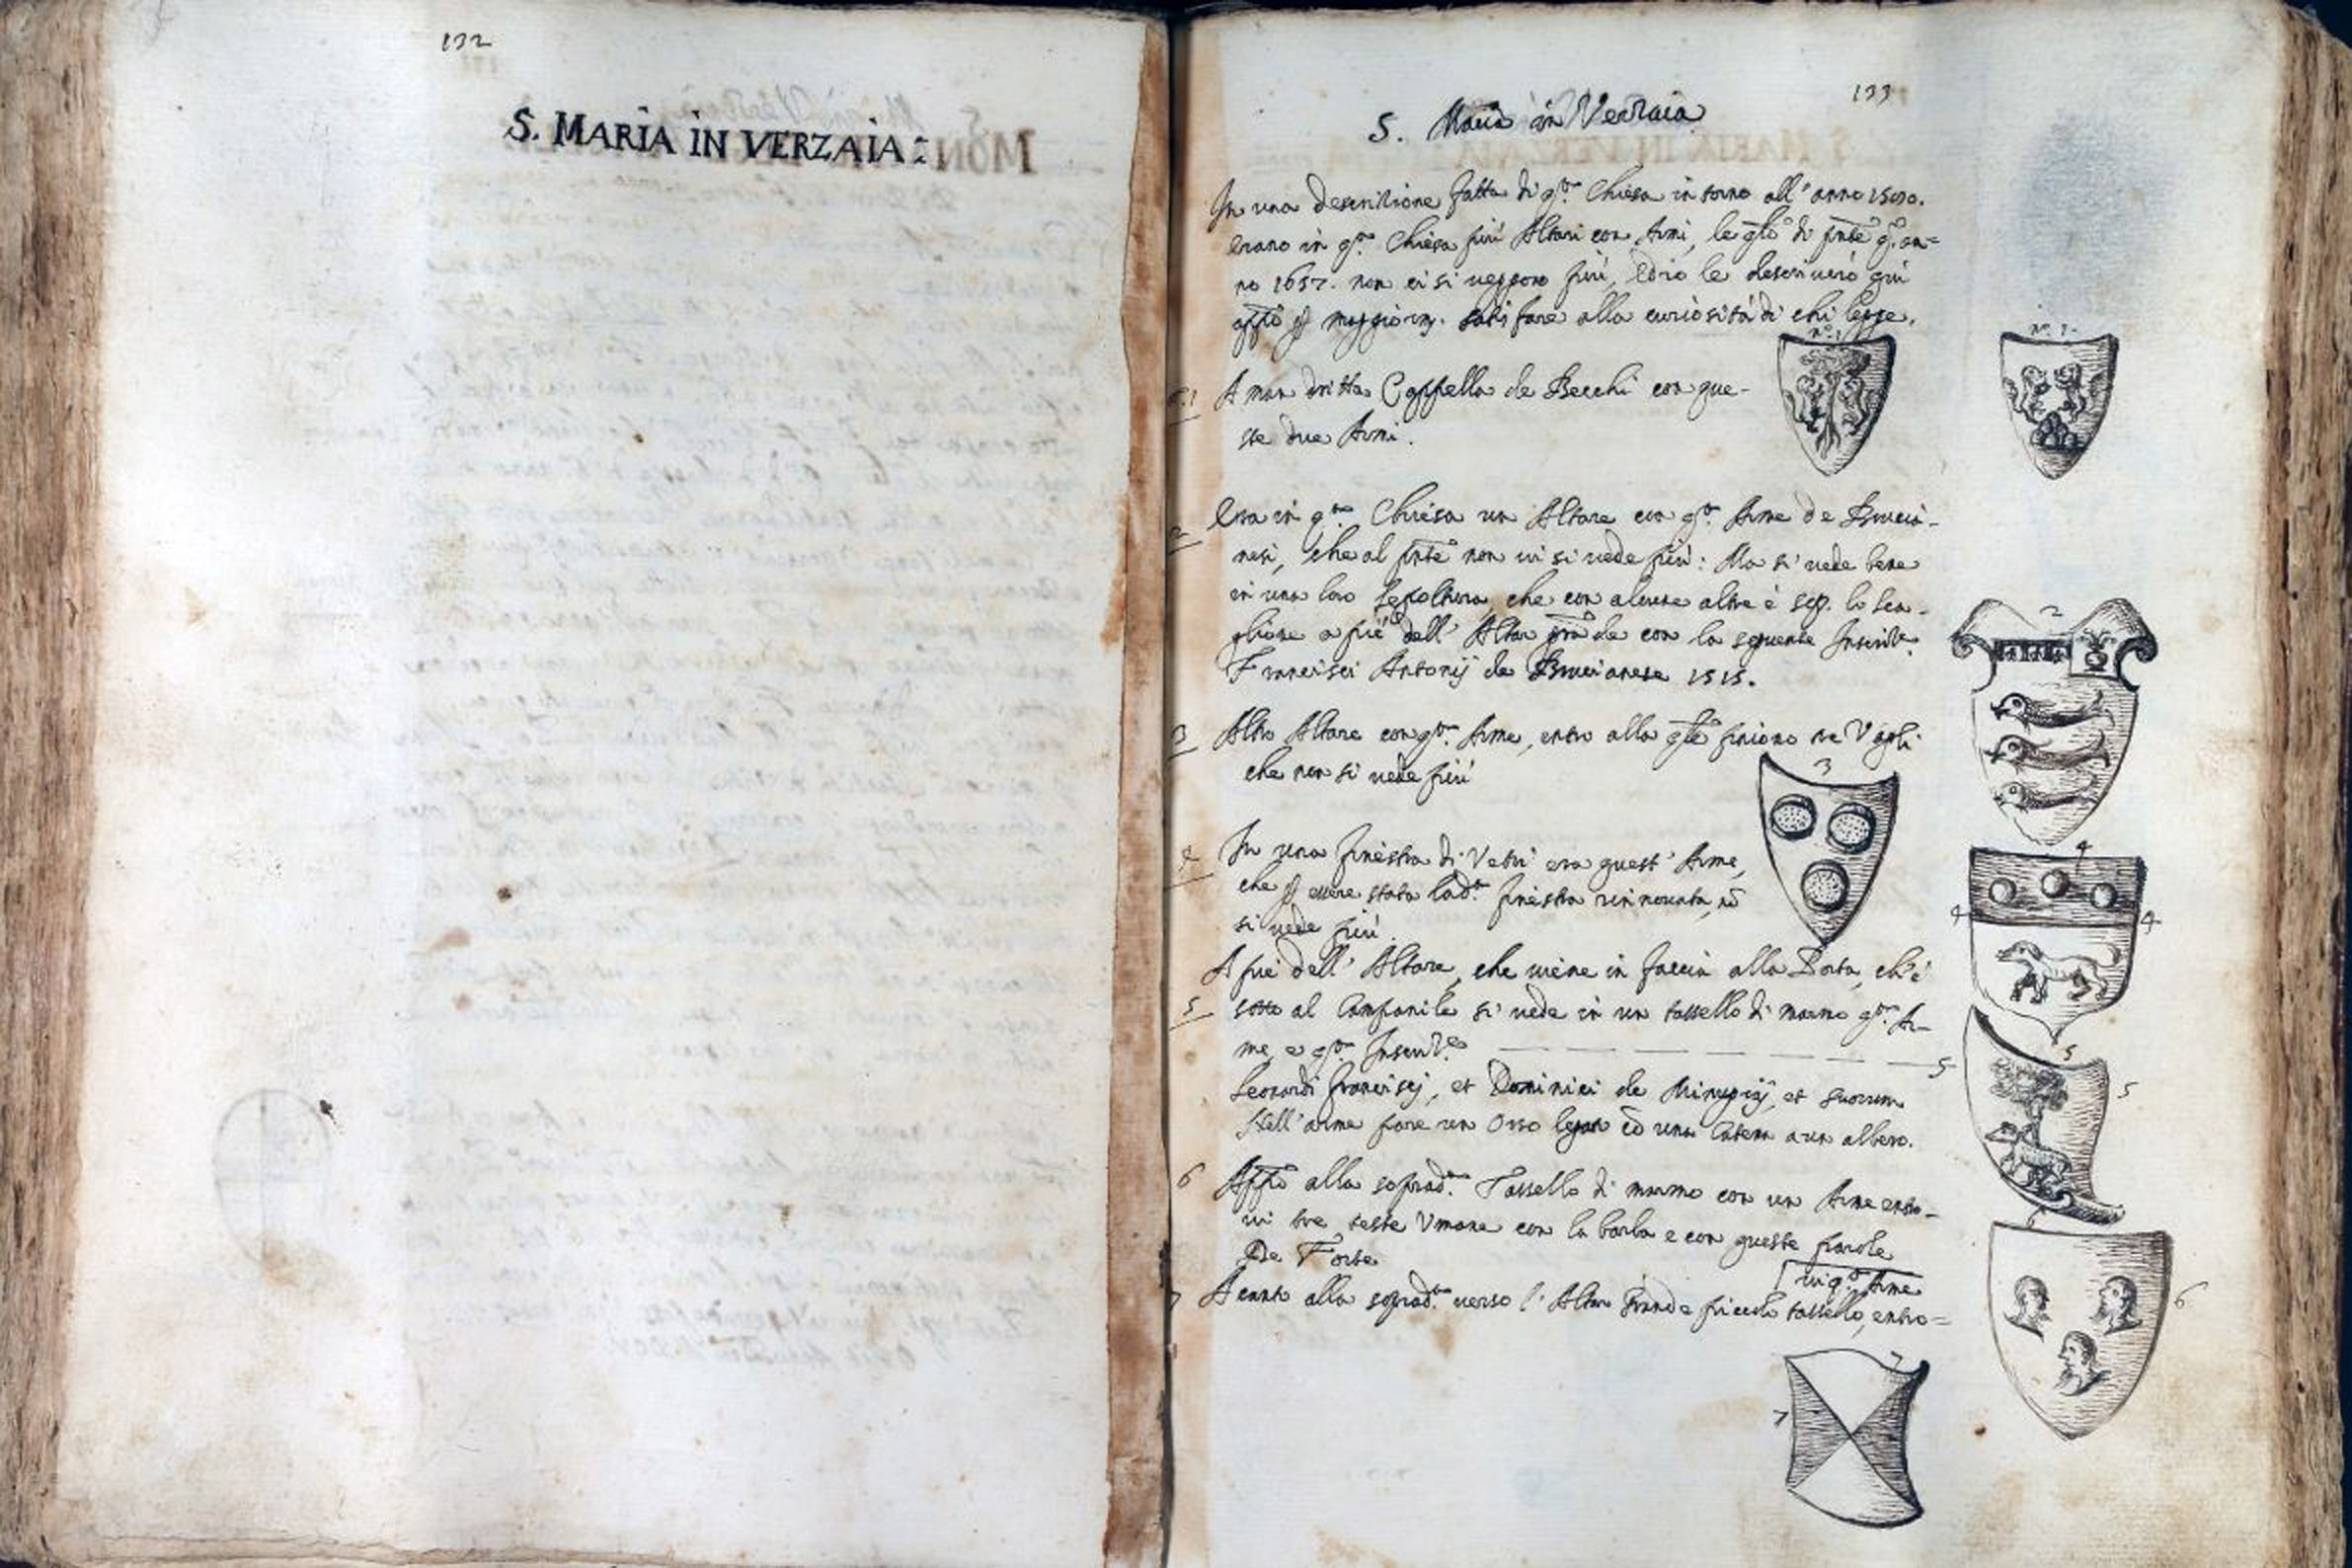 132
S. MARIA IN VERZAIA:
133
S. Maria in Verzaia
In una descrizione fatta di q.ta Chiesa intorno all' anno
erano in q.ta Chiesa più Altari con Armi, le q̃li di p̃nte q.o an=
no 1657. non ci si veggono più, ed io le descriverò qui
app̃o p maggiorm. satisfare alla curiosità di chi legge.
n.o 1
n.o 1.
1 A man dritta Cappella de Becchi con que-
ste due Armi.
2 Era in q.ta Chiesa un Altare con q.ta Arme de Brucia-
nesi, che al p̃nte non vi si vede più: Ma si vede bene
in una loro Sepoltura, che con alcune altre è sop. lo sca-
glione a piè dell' Altar grãde con la seguente Inscriz.e
Francisci Antonij de Brucianese 1515.
2
3 Altro Altare con q.ta Arme, entro alla q̃le sono tre Vagli
che non si vede più
3
4 In una finestra di Vetri era quest' Arme,
che p essere stata lad.ta finestra rinnovata, nõ
si vede più.
4
4 4
A piè dell' Altare, che viene in faccia alla Porta, ch'è
5 sotto al Campanile si vede in un tassello di marmo q.ta Ar-
me, e q.ta Inscriz.e
5
Leonardi Francisci, et Dominici de et suorum
Nell' arme pare un Orso legato cõ una Catena a un albero.
5
5
6 App̃o alla soprad.ta Tassello di marmo con un Arme entro-
vi tre teste Umane con la barba e con queste parole
De Forte
6
6
vi q.ta Arme
7 Acanto alla soprad.ta verso l' Altar Grande piccolo tassello, entro=
7
7